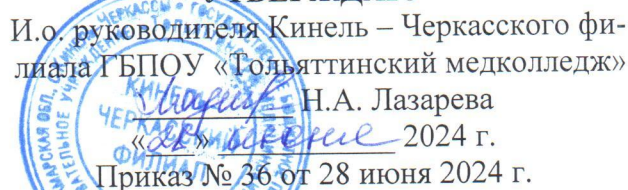 И.о. руководителя Кинель – Черкасского фи-
лиала ГБПОУ «Тольяттинский медколледж»
Н.А. Лазарева
«28» июня 2024 г.
Приказ № 36 от 28 июня 2024 г.
КИНЕЛЬ
ЧЕРКАССКИЙ
ФИЛИАЛ